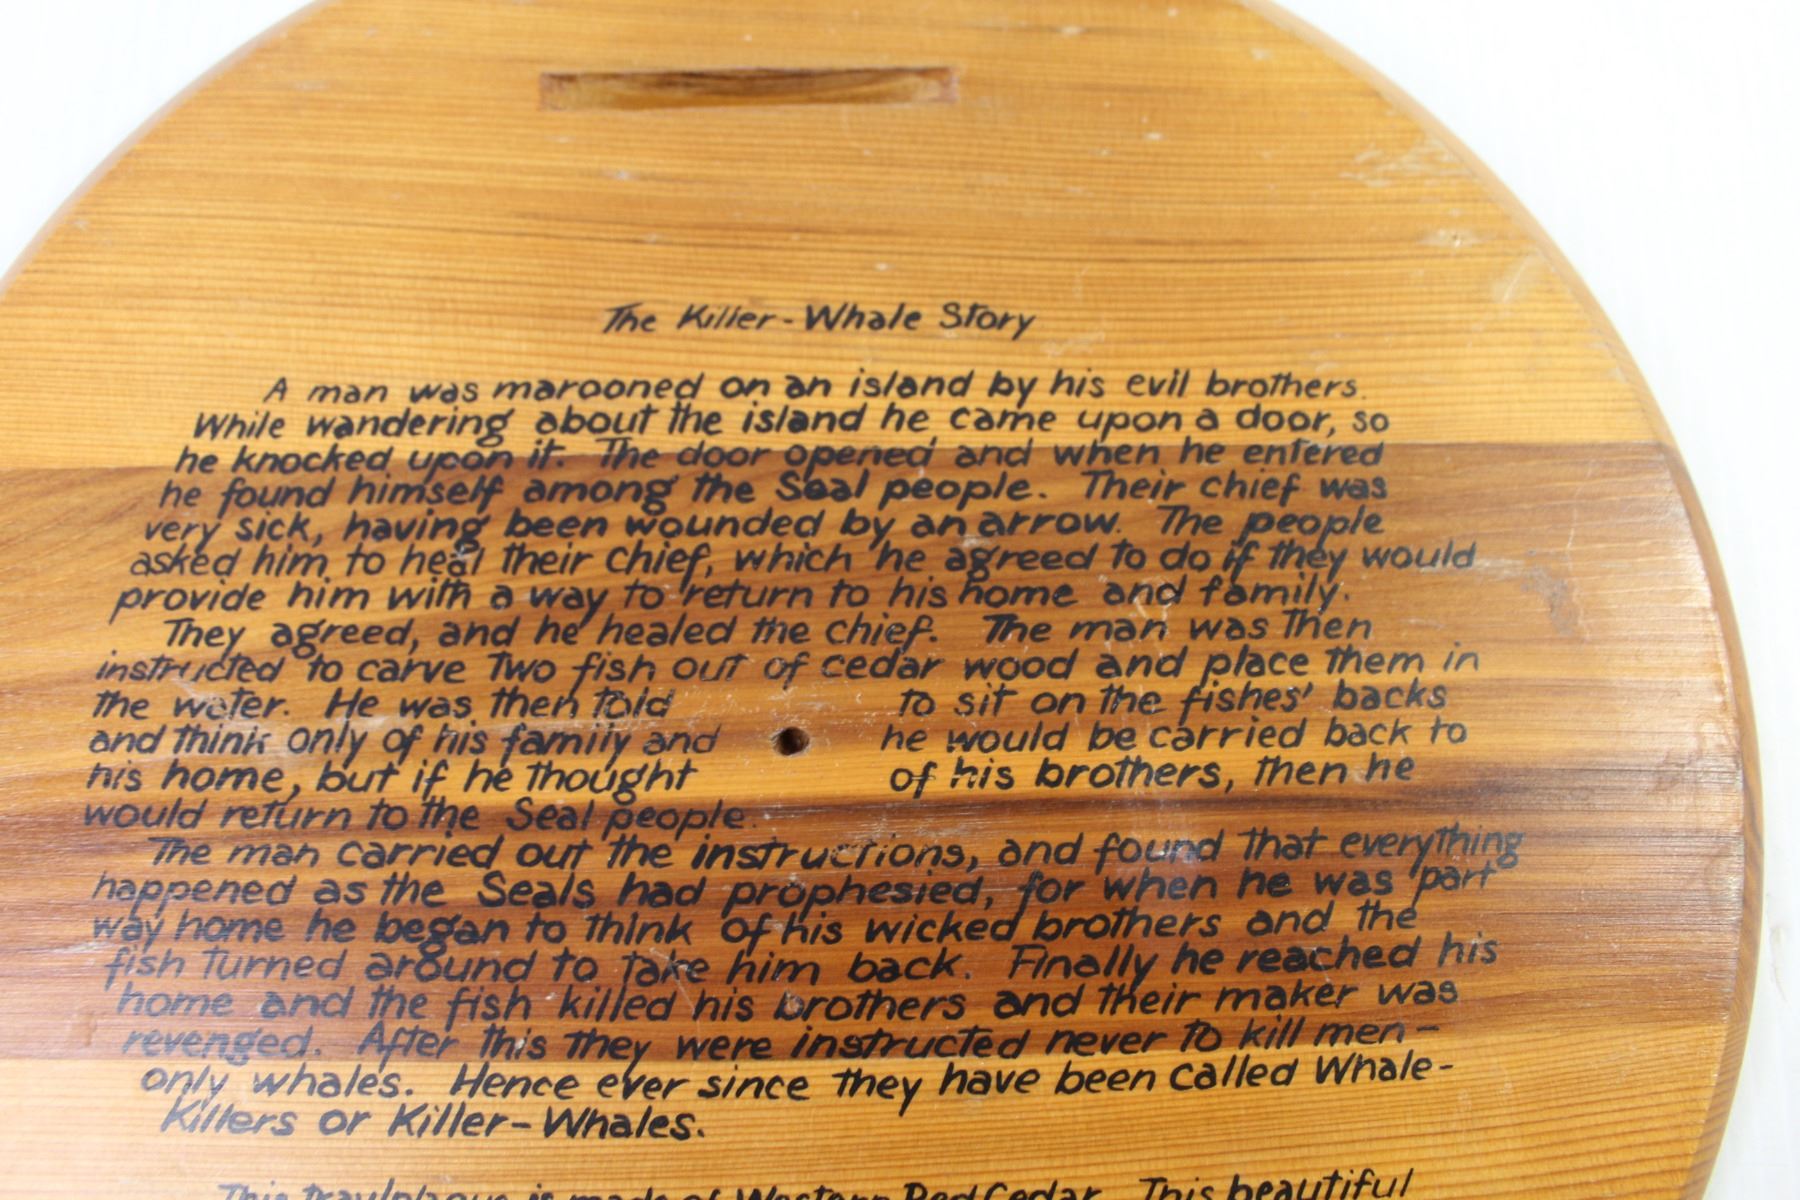 The Killer-Whale Story
A man was marooned on an island by his evil brothers.
While wandering about the island he came upon a door, so
he knocked upon it. The door opened and when he entered
he found himself among the Seal people. Their chief was
very sick, having been wounded by an arrow. The people
asked him to heal their chief, which he agreed to do if they would
provide him with a way to return to his home and family.
They agreed, and he healed the chief. The man was then
instructed to carve two fish out of cedar wood and place them in
the water. He was then told to sit on the fishes' backs
and think only of his family and he would be carried back to
his home, but if he thought of his brothers, then he
would return to the Seal people.
The man carried out the instructions, and found that everything
happened as the Seals had prophesied, for when he was part
way home he began to think of his wicked brothers and the
fish turned around to take him back. Finally he reached his
home and the fish killed his brothers and their maker was
revenged. After this they were instructed never to kill men-
only whales. Hence ever since they have been called Whale-
Killers or Killer-Whales.
This tray/plaque is made of Western Red Cedar. This beautiful